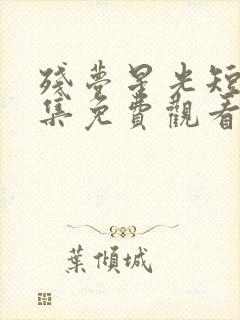 殘夢星光短
集免費觀看
葉傾城